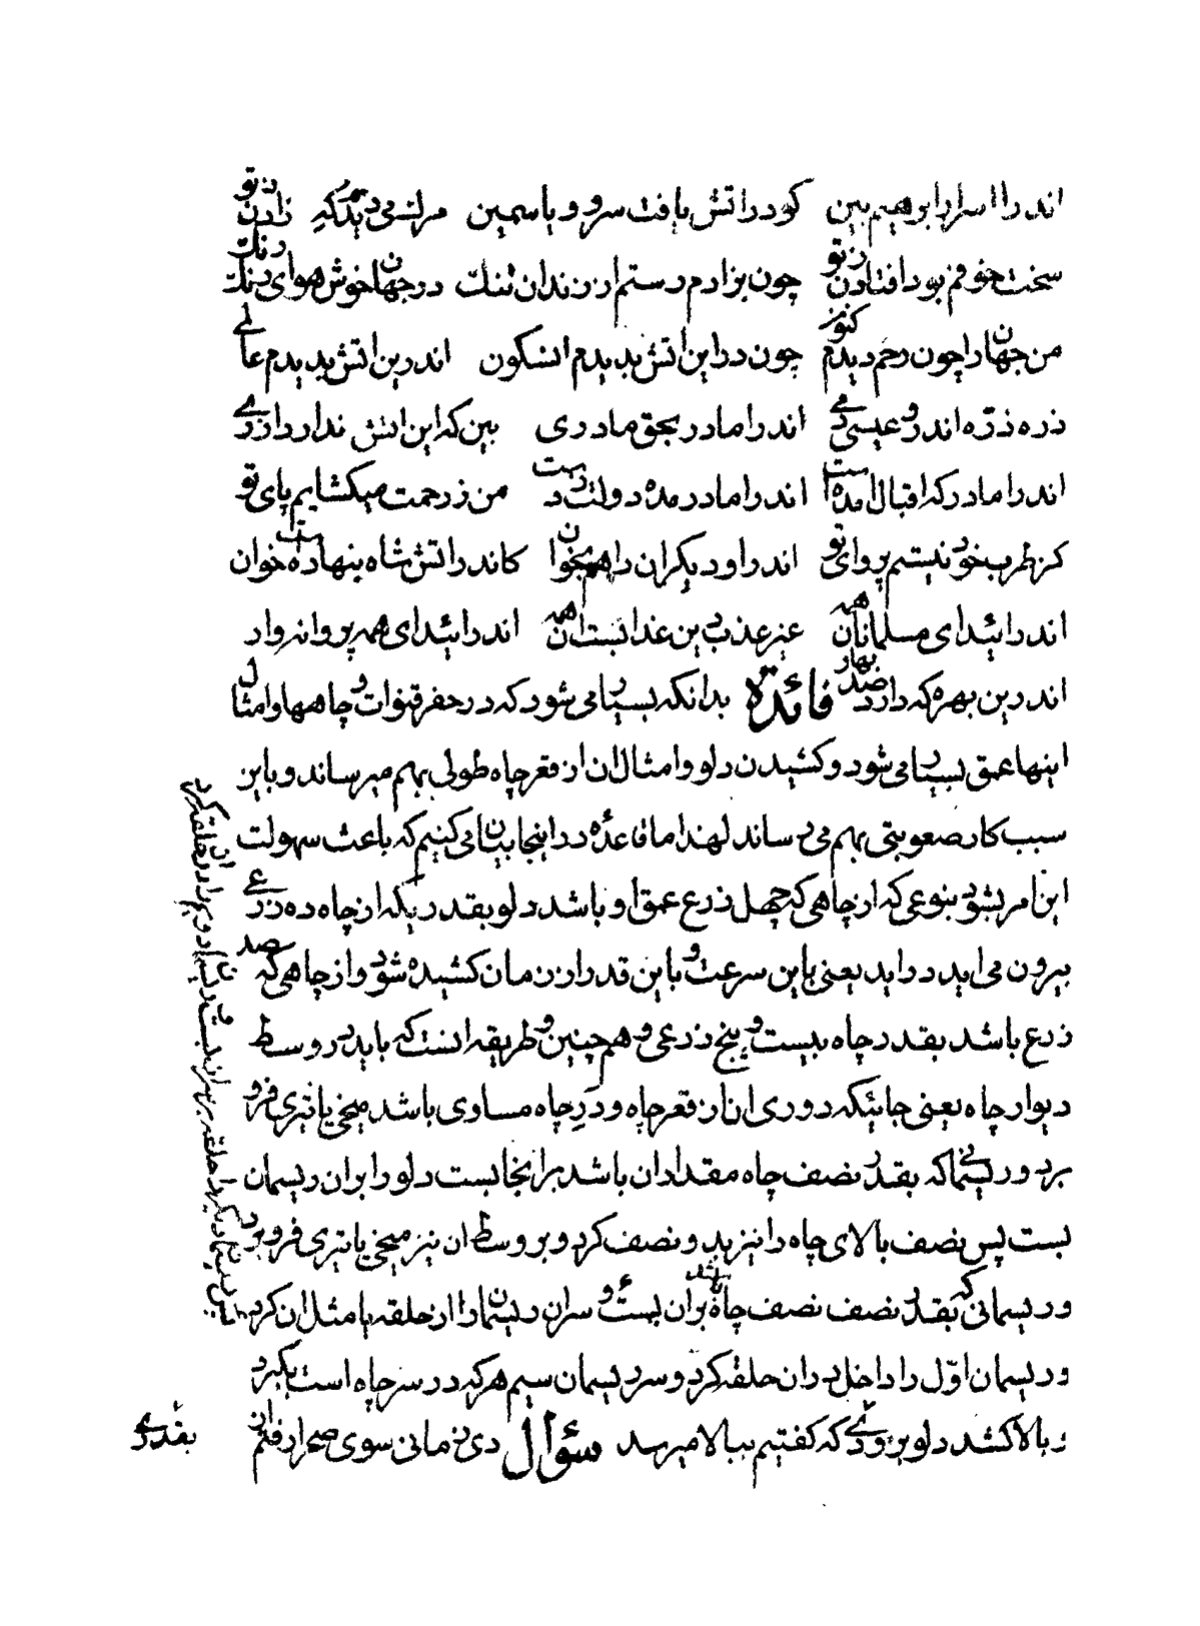 اندرا اسرار ابرهیم بین کو در اتش یافت سرو و یاسمین مرك می دیدم که زادن ز تو
سخت خوفم بود افتادن ز تو چون بزادم رستم از زندان تنك در جهان خوش هوای رنك
من جهان را چون رحم دیدم کنون چون درین اتش بدیدم این سکون اندرین اتش بدیدم عالمی
ذره ذره اندرو عیسی دمی اندرا مادر بحق مادری بین که این اتش ندارد ازری
اندرا مادر که اقبال امده است اندرا مادر مده دولت ز دست من ز رحمت میکشایم پای تو
کز طرب خود نیستم پروای تو اندرا و دیکران را هم بخوان کاندر اتش شاه بنهاده است خوان
اندرائید ای مسلمانان همه غیر عذب دین عذابست ان همه اندرائید ای همه پروانه وار
اندرین بهره که دارد صد بهار فائدة بدانکه بسیار می شود که در حفر قنوات و چاهها و امثال
اینها عمق بسیار می شود و کشیدن دلو و امثال ان از قعر چاه طولی بهم میرساند و باین
سبب کار صعوبتی بهم می رساند لهذا ما قاعده در اینجا بیان می کنیم که باعث سهولت
این امر بشود بنوعی که از چاهی که چهل ذرع عمق او باشد دلو بقدر یکه از چاه ده ذرعی
بیرون می اید در اید یعنی باین سرعت و باین قدر از زمان کشیده شود و از چاهی که صد
ذرع باشد بقدر چاه بیست و پنج ذرعی و هم چنین و طریقه انست که باید در وسط
دیوار چاه یعنی جائیکه دوری ان از قعر چاه و در چاه مساوی باشد میخی یا تیری فرو
برد و ریسمانی که بقدر نصف چاه مقدار ان باشد بر انجا بست دلو را بران ریسمان
بست پس نصف بالای چاه را نیز بد و نصف کرد و بر وسط ان نیز میخی یا تیری فرو برد
و ریسمانی که بقدر نصف نصف چاه باشد بران بست و سر ان ریسمان را از حلقه یا مثل ان کرد
و ریسمان اول را داخل در ان حلقه کرد و سر ریسمان سیم هر که در سر چاه است بکیرد
و بالا کشد دلو بزودی که کفتیم ببالا میرسد سؤال دی زمانی سوی صحرا رفتم ان
بقدری